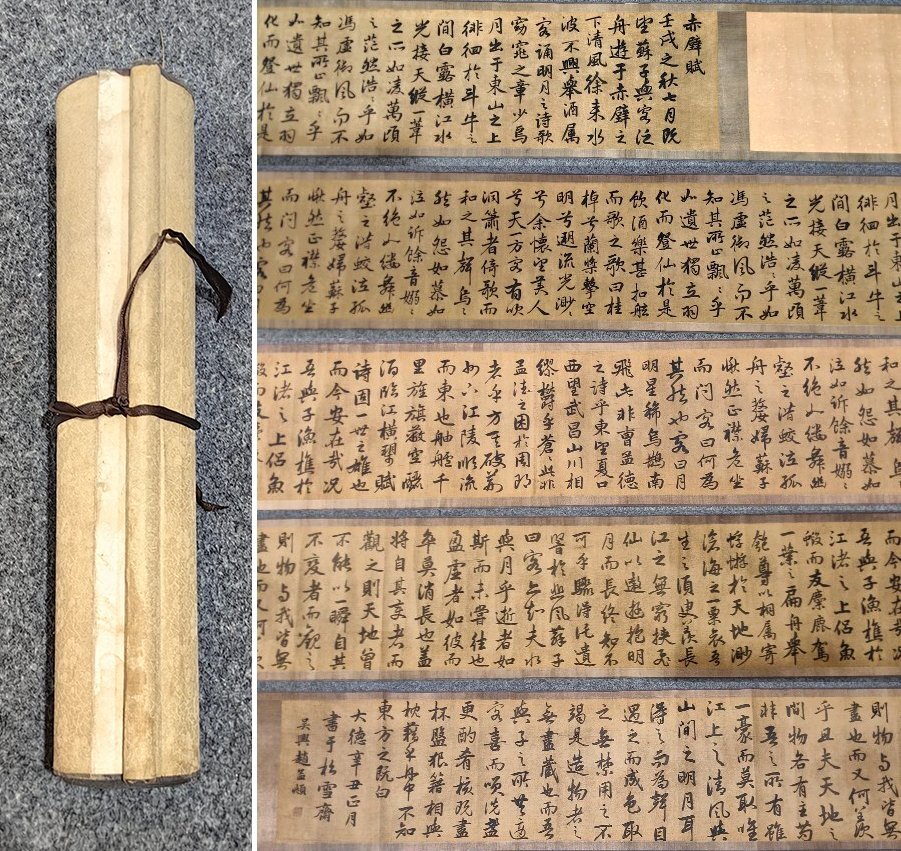 赤壁賦
壬戌之秋七月既
望蘇子與客泛
舟遊于赤壁之
下清風徐来水
波不興舉酒属
客誦明月之詩歌
窈窕之章少焉
月出于東山之上
徘徊於斗牛之
間白露横江水
光接天縱一葦
之所如凌萬頃
之茫然浩々乎如
馮虚御風而不
知其所止飄々乎
如遺世獨立羽
化而登仙於是
月出于東山之上
徘徊於斗牛之
間白露横江水
光接天縱一葦
之所如凌萬頃
之茫然浩々乎如
馮虚御風而不
知其所止飄々乎
如遺世獨立羽
化而登仙於是
飲酒樂甚扣舷
而歌之歌曰桂
棹兮蘭槳擊空
明兮溯流光渺々
兮余懷望美人
兮天一方客有吹
洞簫者倚歌而
和之其聲嗚々
然如怨如慕如
泣如訴餘音嫋々
不絶如縷舞幽
壑之潜蛟泣孤
舟之嫠婦蘇子
愀然正襟危坐
而問客曰何為
其然也客
和之其聲嗚々
然如怨如慕如
泣如訴餘音嫋々
不絶如縷舞幽
壑之潜蛟泣孤
舟之嫠婦蘇子
愀然正襟危坐
而問客曰何為
其然也客曰月
明星稀烏鵲南
飛此非曹孟德
之詩乎東望夏口
西望武昌山川相
繆欝乎蒼々此非
孟德之困於周郎
者乎方其破荊
州下江陵順流
而東也舳艫千
里旌旗蔽空釃
酒臨江横槊賦
詩固一世之雄也
而今安在哉況
吾與子漁樵於
江渚之上侶魚
鰕而友
而今安在哉況
吾與子漁樵於
江渚之上侶魚
鰕而友麋鹿駕
一葉之扁舟舉
匏尊以相属寄
蜉蝣於天地渺
滄海之一粟哀吾
生之須臾羨長
江之無窮挟飛
仙以遨遊抱明
月而長終知不
可乎驟得托遺
響於悲風蘇子
曰客亦知夫水
與月乎逝者如
斯而未嘗往也
盈虚者如彼而
卒莫消長也蓋
將自其變者而
觀之則天地曾
不能以一瞬自其
不變者而觀之
則物与我皆無
盡也而又何
則物与我皆無
盡也而又何羨
乎且夫天地之
間物各有主苟
非吾之所有雖
一豪而莫取唯
江上之清風與
山間之明月耳
得之而為聲目
遇之而成色取
之無禁用之不
竭是造物者之
無盡藏也而吾
與子之所共適
客喜而唉洗盞
更酌肴核既盡
杯盤狼籍相與
枕藉乎舟中不知
東方之既白
大德辛丑正月
書于松雪齋
吳興趙孟頫